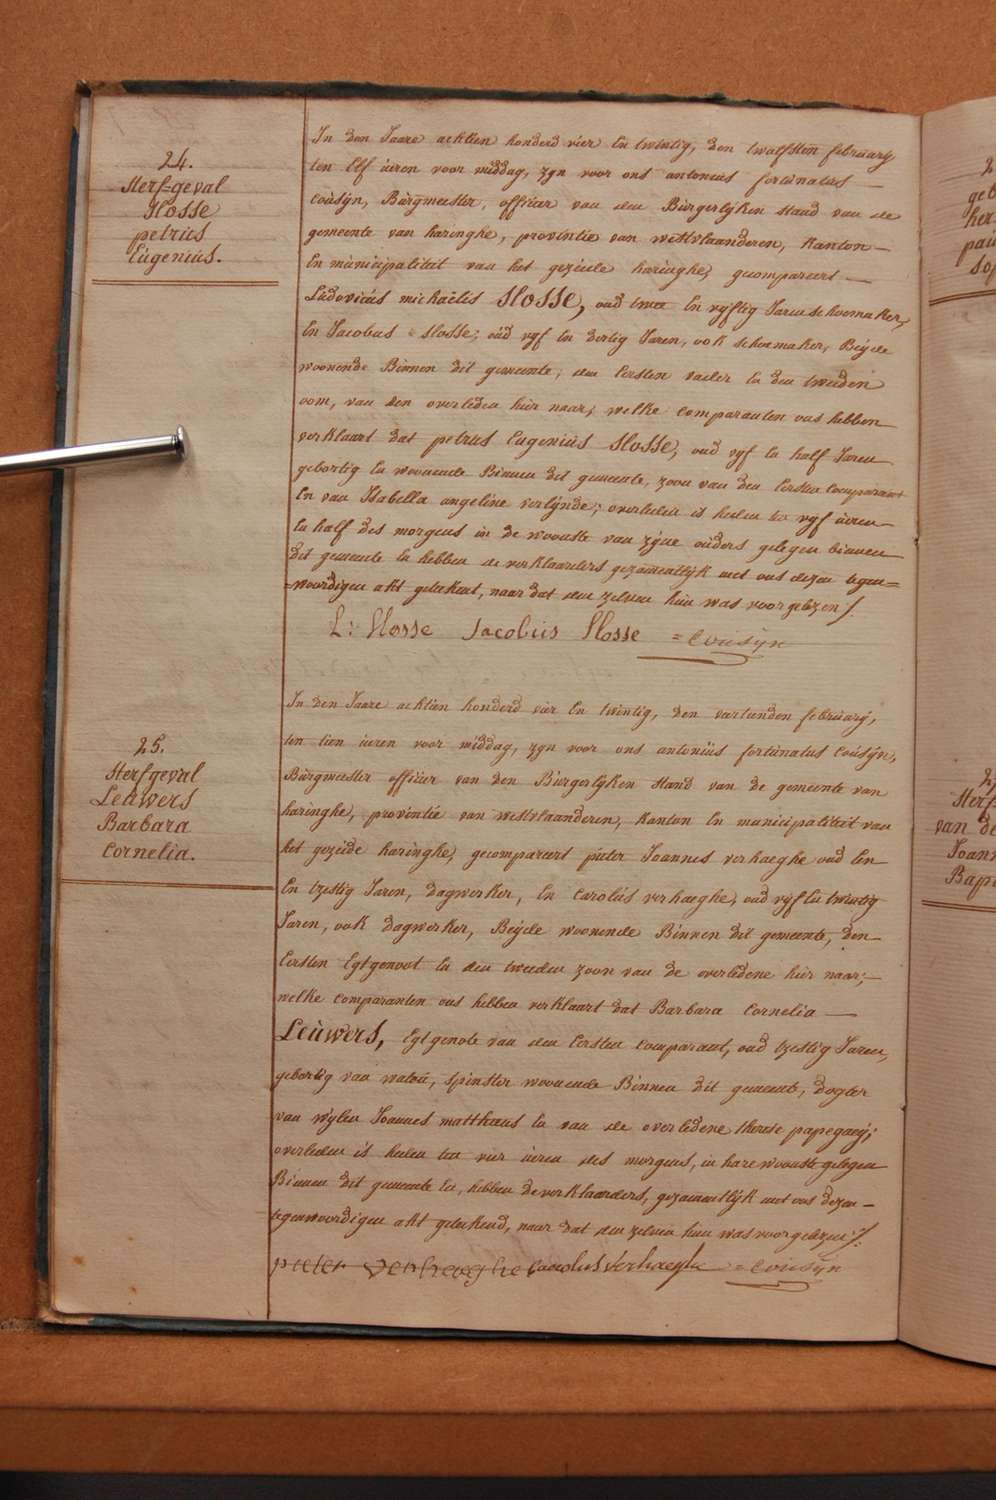 24.
Sterf-geval
Slosse
petrius
Eugeniús.
In den Jaare achtien honderd vier En twintig, den twalfsten february
ten Elf úren voor middag, zyn voor ons antonius fortúnatus —
coúsÿn, Búrgmeester, officier van den Búrgerlÿken stand van de
gemeente van haringhe, provintie van westvlaanderen, Kanton —
En múnicipaliteit van het gezeide haringhe, gecompareert —
Lúdovicús michaëlis Slosse, oud twee En vyftig Jaren schoemaker,
En Jacobus Slosse, oúd vyf En dertig Jaren, ook schoemaker, Beÿde
woonende Binnen dit gemeente, den Eersten vader En den tweeden
oom, van den overleden hier naar; welke comparanten ons hebben
verklaart dat petrus Eugeniús Slosse, oud vyf En half Jaren
gebortig En woonende Binnen dit gemeente, zoon van den Eersten Comparant
En van Isabella angeline verlÿnde; overleden is heden ten vyf úren
En half des morgens in de wooniste van zÿne oúders gelegen binnen
dit gemeente En hebben de verklaarders gezamentlÿk met ons dezen tegen=
=woordigen akt geteekent, naar dat den zelven hún was voorgelezen /.
L: Slosse Jacobús Slosse = Cousÿn
25.
Sterfgeval
Leúwers
Barbara
Cornelia.
In den Jaare achtien honderd vier En twintig, den veertienden februarÿ,
ten tien úren voor middag, zyn voor ons antoniús fortúnatus Coúsÿn,
Búrgmeester officier van den Búrgerlÿken stand van de gemeente van
haringhe, provintie van westvlaanderen, Kanton En municipaliteit van
het gezeide haringhe, gecompareert pieter Joannes verhaeghe oud Een
En tzestig Jaren, dagwerker, En Carolús verhaeghe, oud vÿf En twintig
Jaren, ook dagwerker, Beÿde woonende Binnen dit gemeente, den
Eersten Egtgenoot En den tweeden zoon van de overledene hier naar; —
welke comparanten ons hebben verklaart dat Barbara Cornelia —
Leúwers, Egtgenote van den Eersten Comparant, oud tzestig Jaren,
gebortig van watoú, spinster woonende Binnen dit gemeente, dogter
van wylen Joannes mattheus En van de overledene therese papegaeÿ;
overleden is heden ten vier úren des morgens, in hare wooniste gelegen
Binnen dit gemeente En, hebben de verklaarders, gezamentlÿk met ons dezen —
tegenwoordigen akt geteekend, naar dat den zelven hun was voorgelezen /.
pieter verhaeghe Carolus verhaeghe = Cousÿn